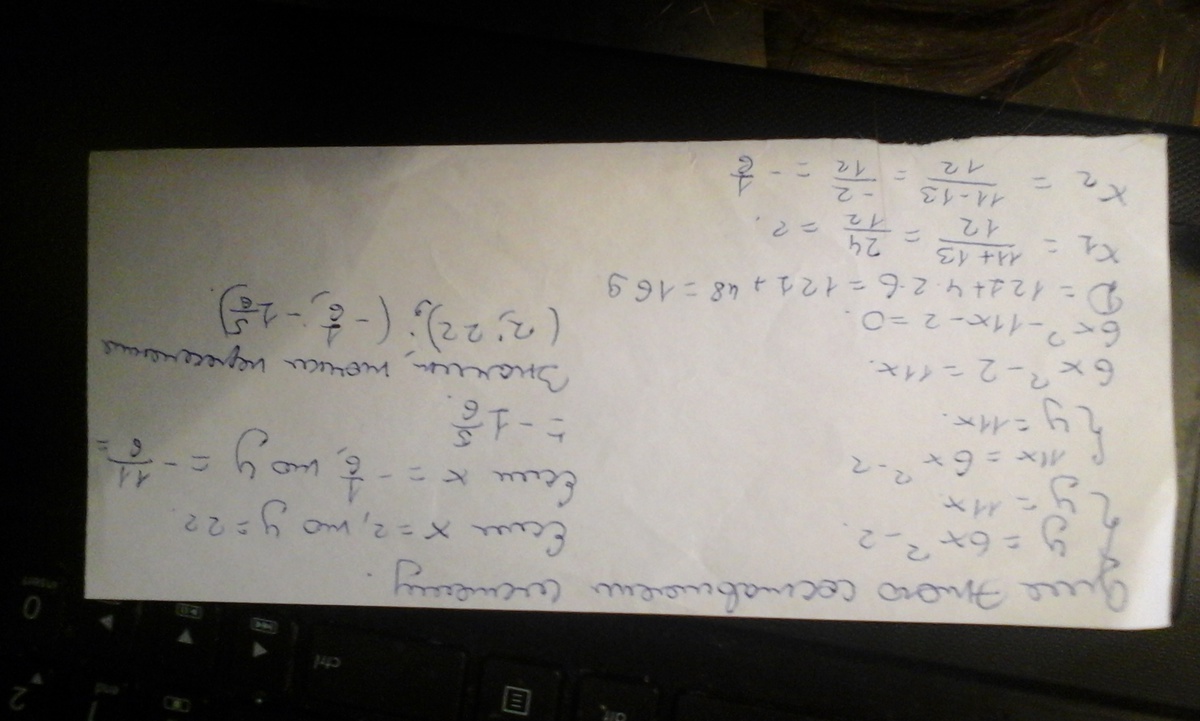 Для этого составляем систему.
{ y = 6x² - 2
{ y = 11x
{ 11x = 6x² - 2
{ y = 11x.
6x² - 2 = 11x.
6x² - 11x - 2 = 0.
D = 121 + 4·2·6 = 121 + 48 = 169
x₁ = (11+13)/12 = 24/12 = 2.
x₂ = (11-13)/12 = -2/12 = -1/6
Если x = 2, то y = 22.
Если x = -1/6, то y = -11/6 =
= -1 5/6.
Значит, точки пересечения
(2; 22); (-1/6; -1 5/6).
ctrl
insert
0
2
end